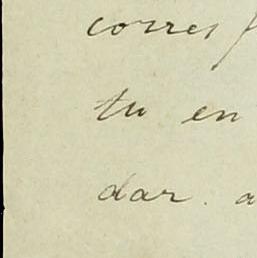 corres
tu en
dar. a